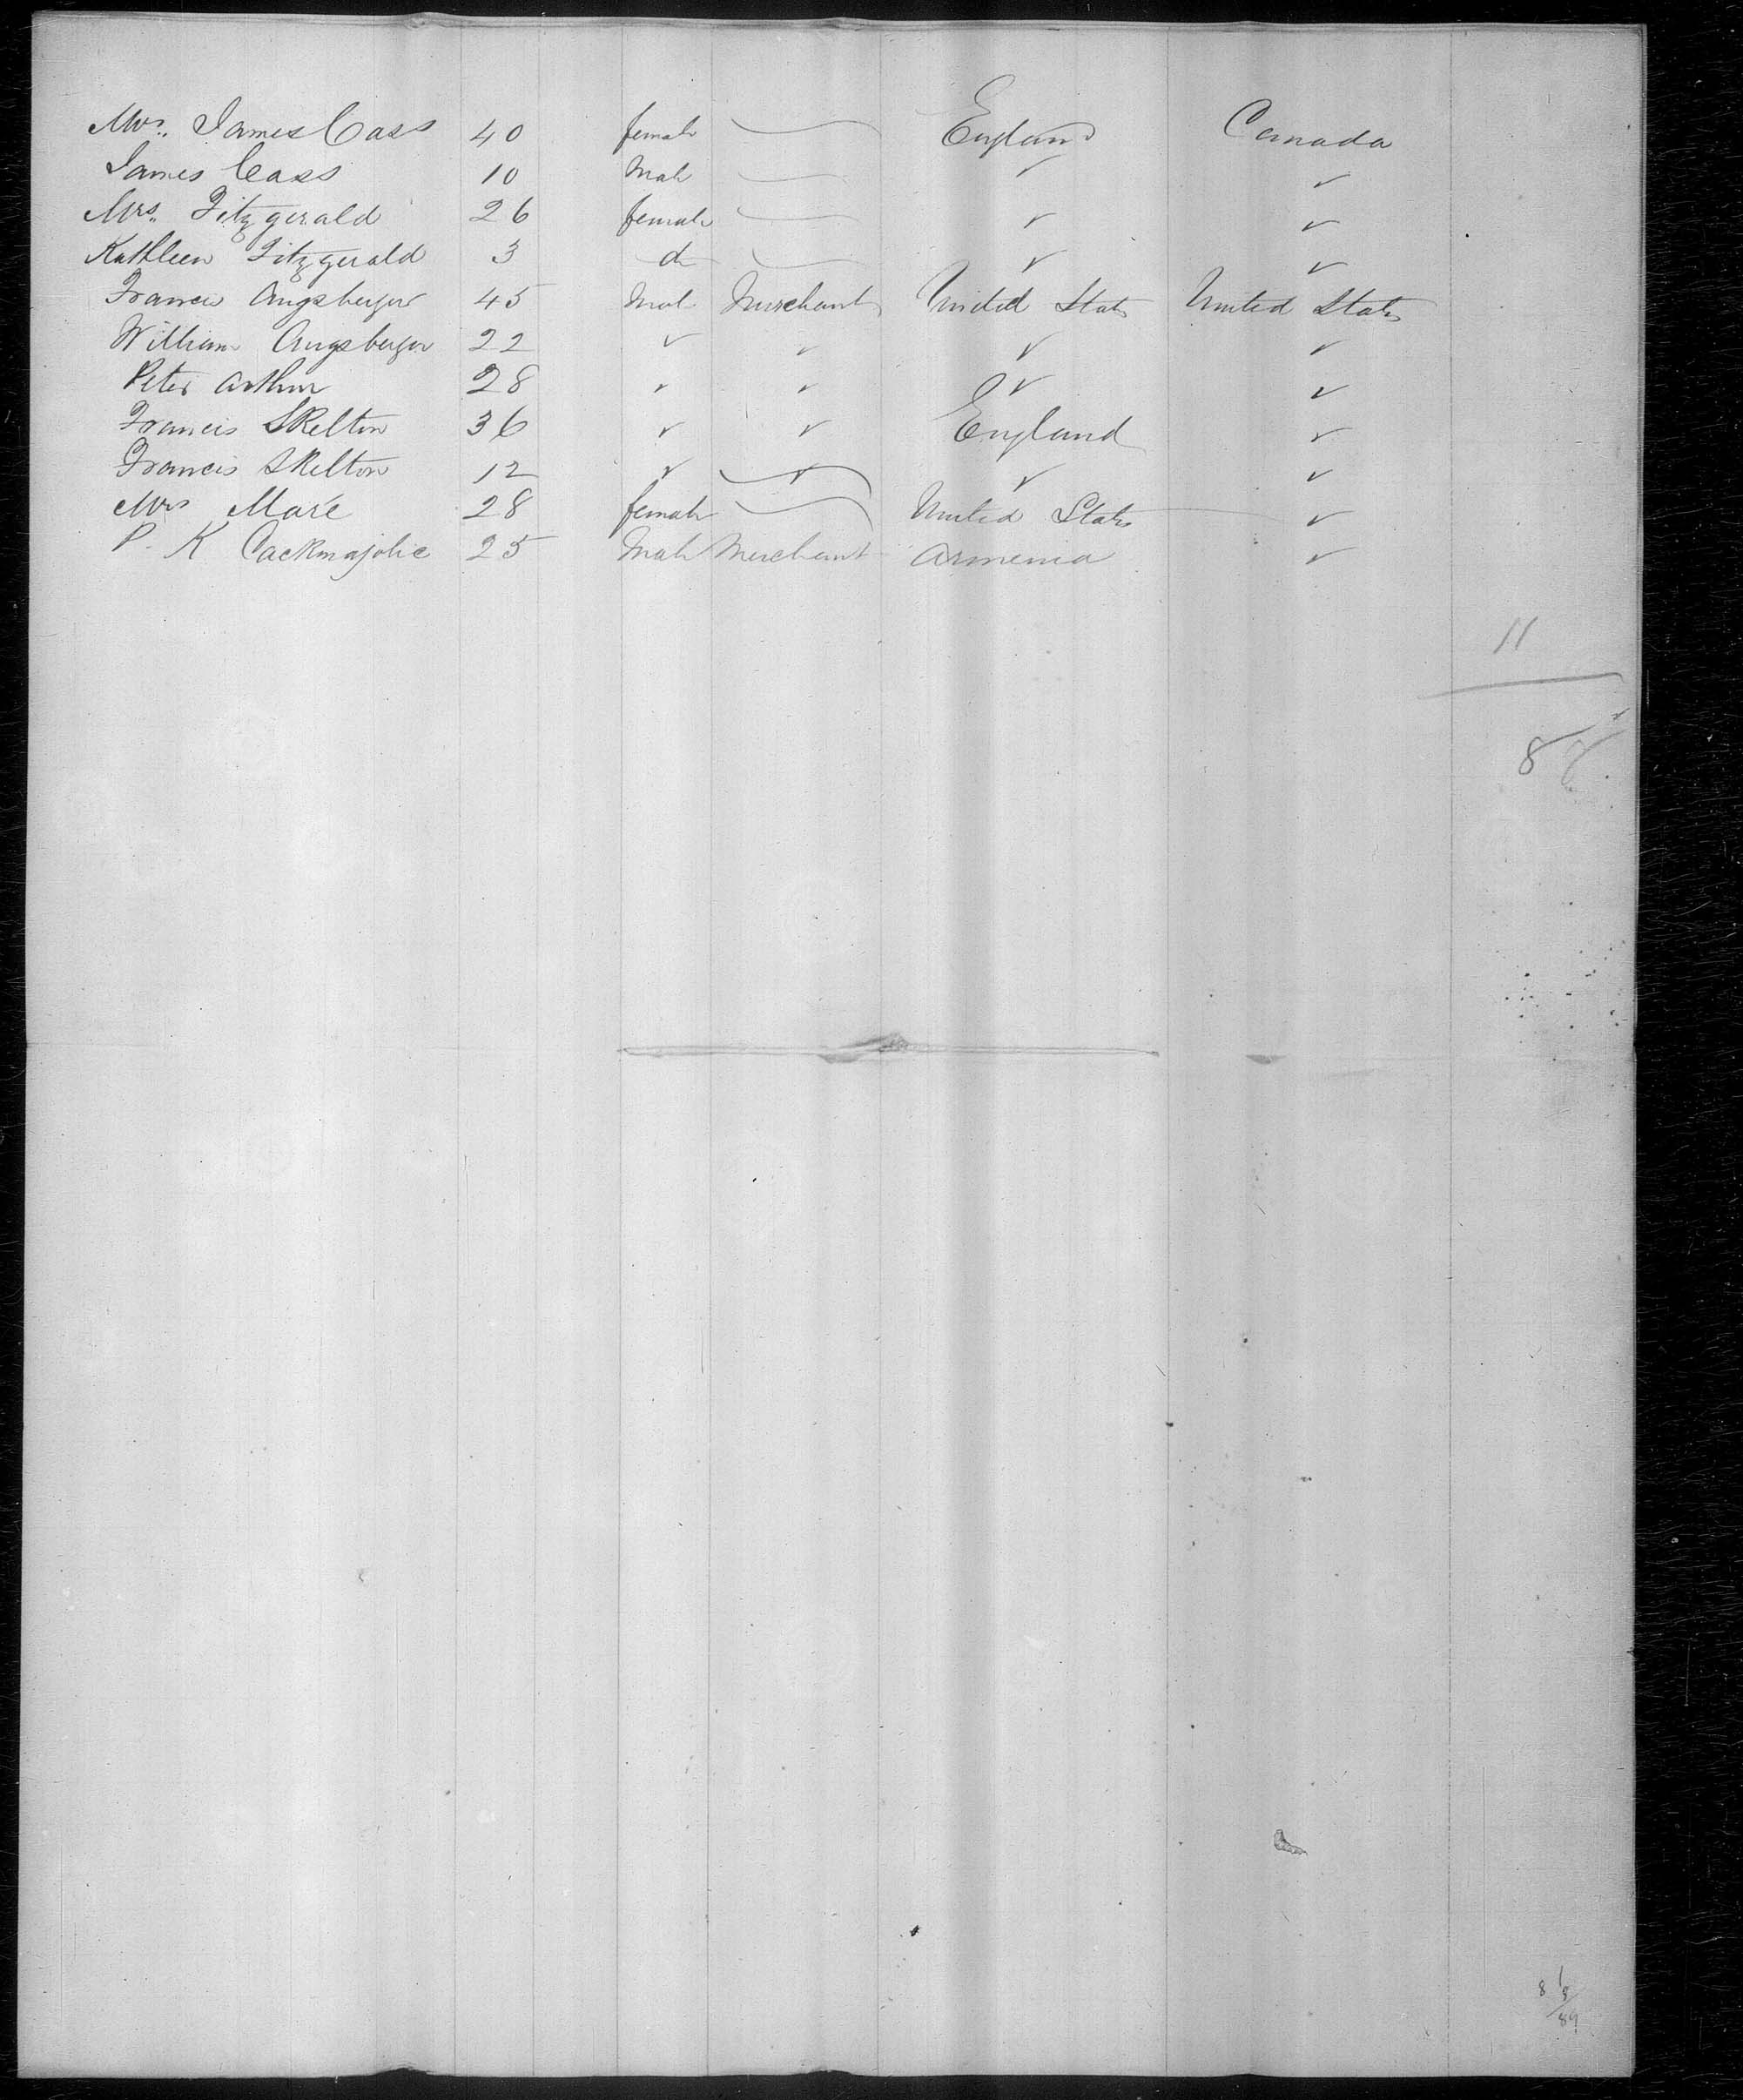 Mrs. James Cass 40 female England Canada
James Cass 10 Male ✓ ✓
Mrs. Fitzgerald 26 female ✓ ✓
Kathleen Fitzgerald 3 do ✓ ✓
Francis Augsberger 45 Male Merchant United States United States
William Augsberger 22 ✓ ✓ ✓ ✓
Peter Arthur 28 ✓ ✓ ✓ ✓
Francis Skelton 36 ✓ ✓ England ✓
Francis Skelton 12 ✓ ✓ ✓ ✓
Mrs Maré 28 female United States ✓
P. K Cackmajolie 25 Male Merchant Armenia ✓
11
8